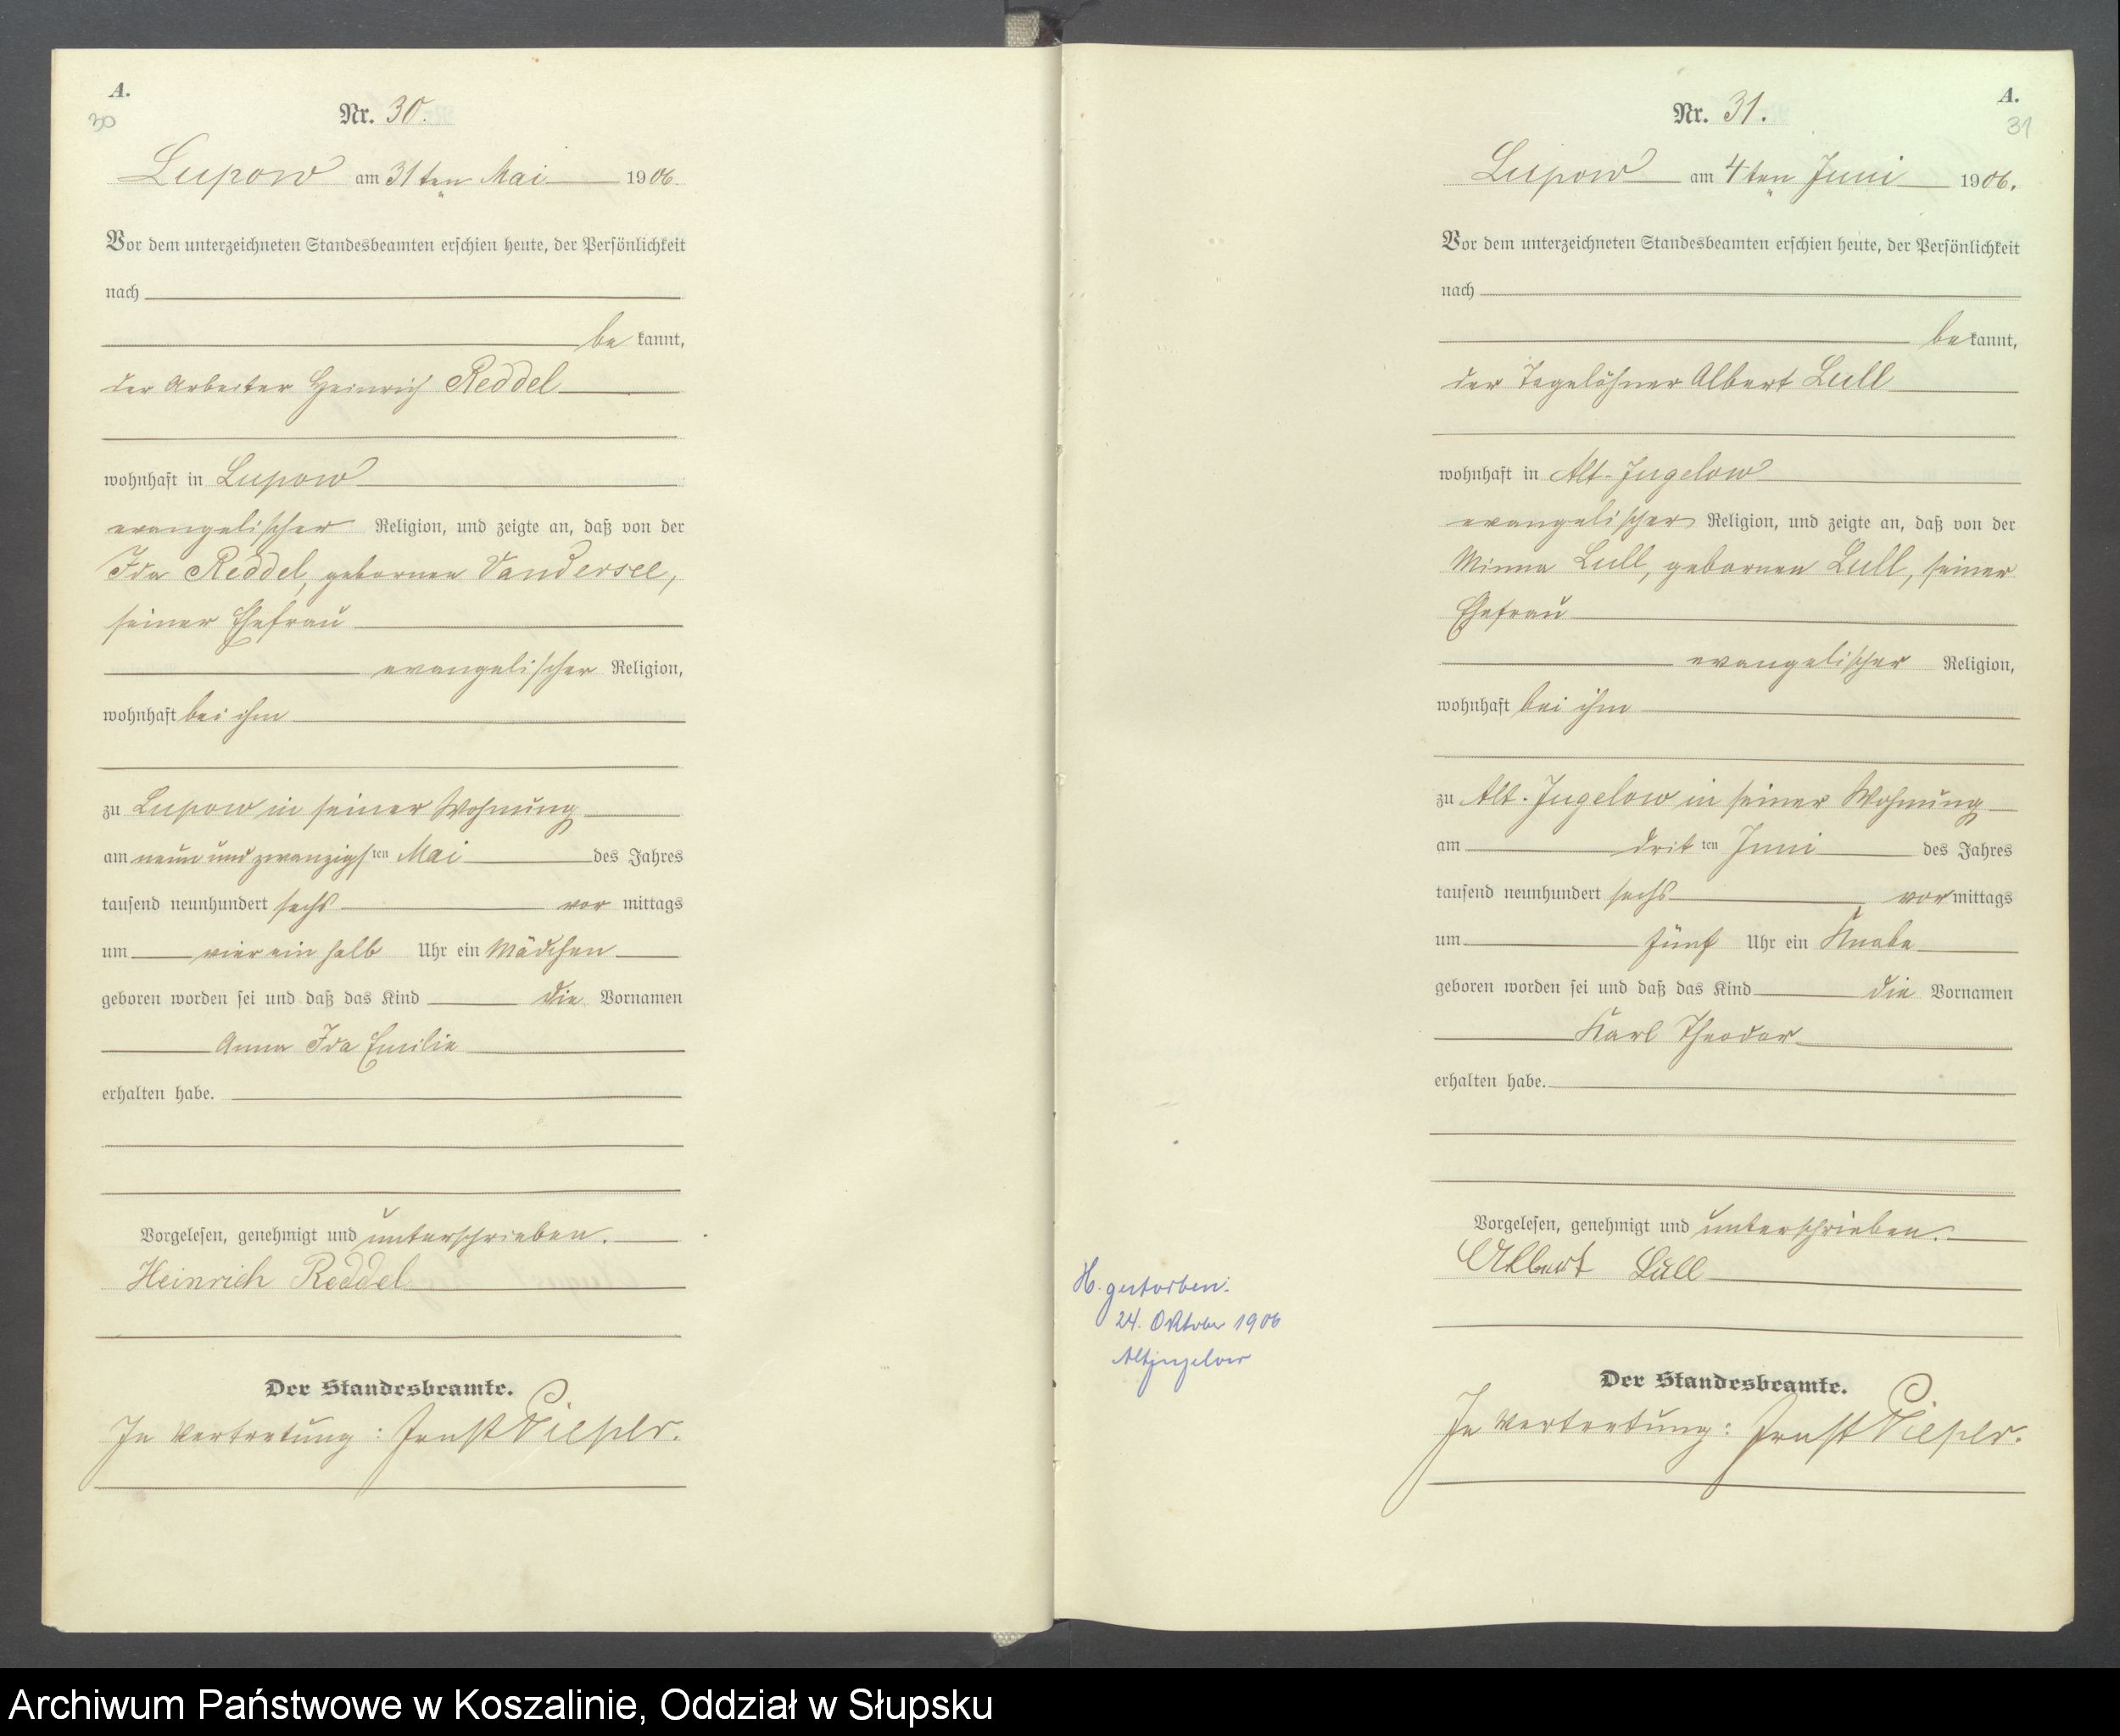 A.
30
Nr. 30.
Lupow am 31ten Mai 1906.
Vor dem unterzeichneten Standesbeamten erschien heute, der Persönlichkeit
nach
be kannt,
der Arbeiter Heinrich Reddel
wohnhaft in Lupow
evangelischer Religion, und zeigte an, daß von der
Ida Reddel, geborenen Vandersee,
seiner Ehefrau
evangelischer Religion,
wohnhaft bei ihm
zu Lupow in seiner Wohnung
am neun und zwanzigsten Mai des Jahres
tausend neunhundert sechs vor mittags
um vier ein halb Uhr ein Mädchen
geboren worden sei und daß das Kind die Vornamen
Anna Ida Emilie
erhalten habe.
Vorgelesen, genehmigt und unterschrieben.
Heinrich Reddel
Der Standesbeamte.
In Vertretung: Ernst Piepler.
A.
31
Nr. 31.
Lupow am 4ten Juni 1906.
Vor dem unterzeichneten Standesbeamten erschien heute, der Persönlichkeit
nach
be kannt,
der Tagelöhner Albert Lull
wohnhaft in Alt-Jugelow
evangelischer Religion, und zeigte an, daß von der
Minna Lull, geborenen Lull, seiner
Ehefrau
evangelischer Religion,
wohnhaft bei ihm
zu Alt-Jugelow in seiner Wohnung
am dritten Juni des Jahres
tausend neunhundert sechs vor mittags
um fünf Uhr ein Knabe
geboren worden sei und daß das Kind die Vornamen
Karl Theodor
erhalten habe.
Vorgelesen, genehmigt und unterschrieben.
Albert Lull
Der Standesbeamte.
In Vertretung: Ernst Piepler.
H. gestorben:
24. Oktober 1906
Altjugelow
Archiwum Państwowe w Koszalinie, Oddział w Słupsku